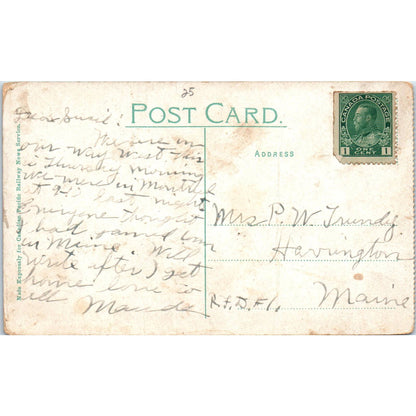 25
POST CARD.
Dear Susie!
We are on
our way West This
is Thursday morning
we were in Montreal
at 9 last night
Everyone thought
I had gained
in Maine. Will
write after I get
home love to
all Maude
ADDRESS
Mrs P. W. Trundy
Harrington
Maine
R.F.D. #1.
CANADA POSTAGE
1 ONE CENT 1
Made Expressly for Canadian Pacific Railway News Service.